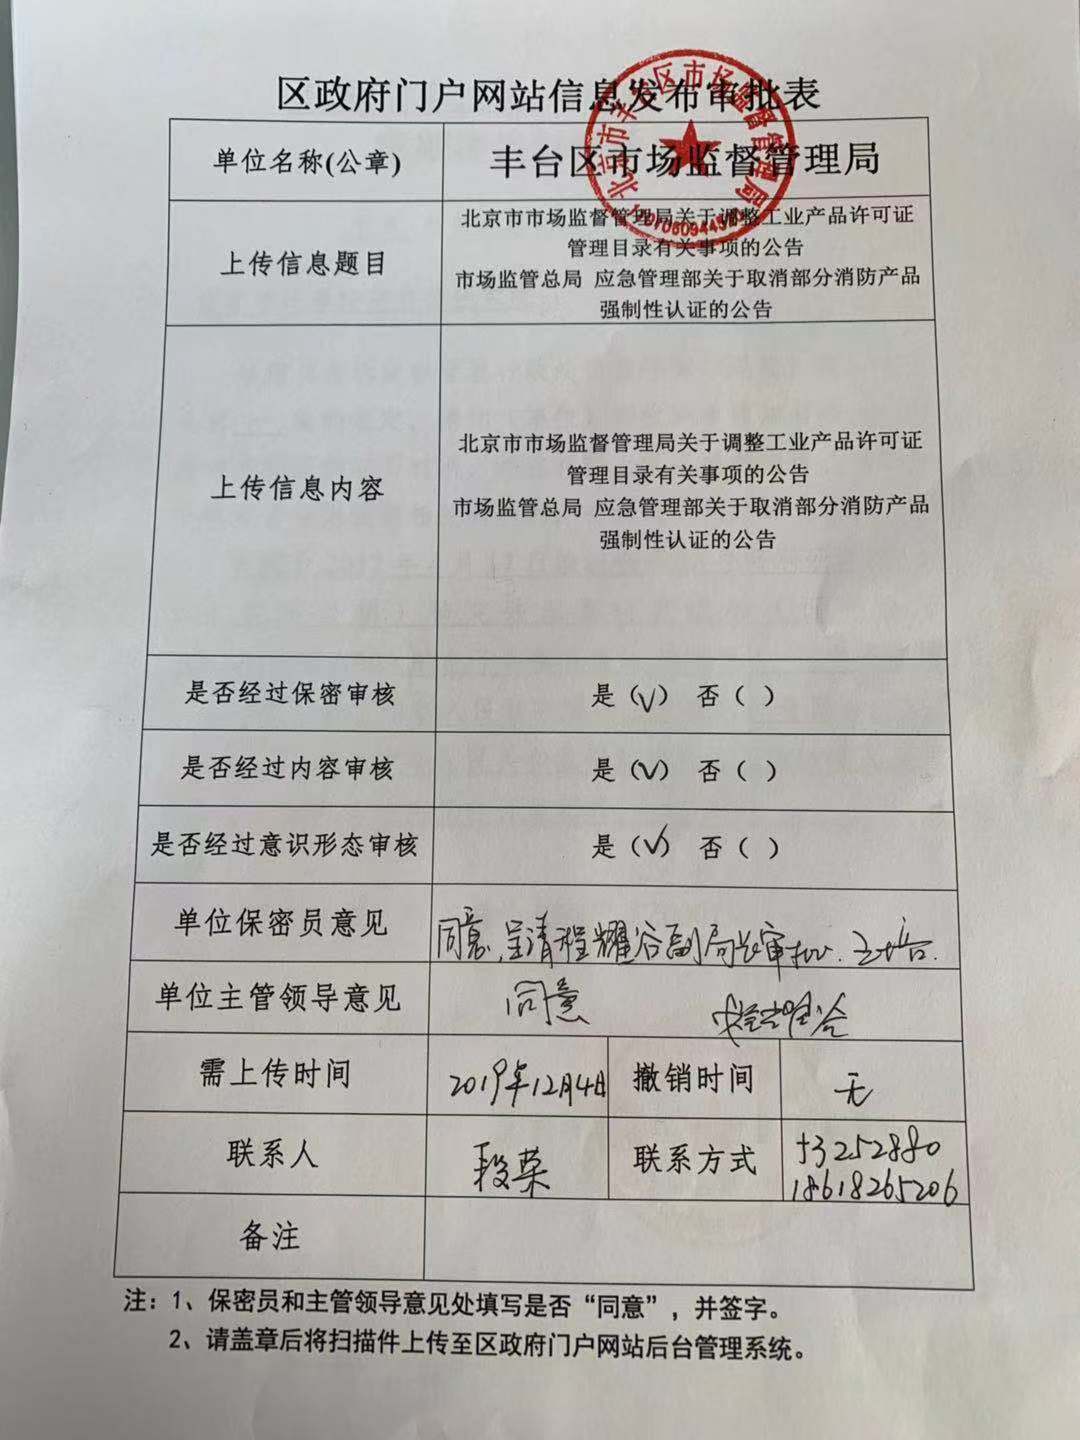 区政府门户网站信息发布审批表
单位名称(公章)
丰台区市场监督管理局
北京市丰台区市场监督管理局
上传信息题目
北京市市场监督管理局关于调整工业产品许可证
管理目录有关事项的公告
市场监管总局 应急管理部关于取消部分消防产品
强制性认证的公告
上传信息内容
北京市市场监督管理局关于调整工业产品许可证
管理目录有关事项的公告
市场监管总局 应急管理部关于取消部分消防产品
强制性认证的公告
是否经过保密审核
是（√） 否（ ）
是否经过内容审核
是（√） 否（ ）
是否经过意识形态审核
是（√） 否（ ）
单位保密员意见
同意,呈请程耀谷副局长审批.
单位主管领导意见
同意
需上传时间
2019年12月4日
撤销时间
无
联系人
段荣
联系方式
83252880
18618265206
备注
注：1、保密员和主管领导意见处填写是否“同意”，并签字。
2、请盖章后将扫描件上传至区政府门户网站后台管理系统。